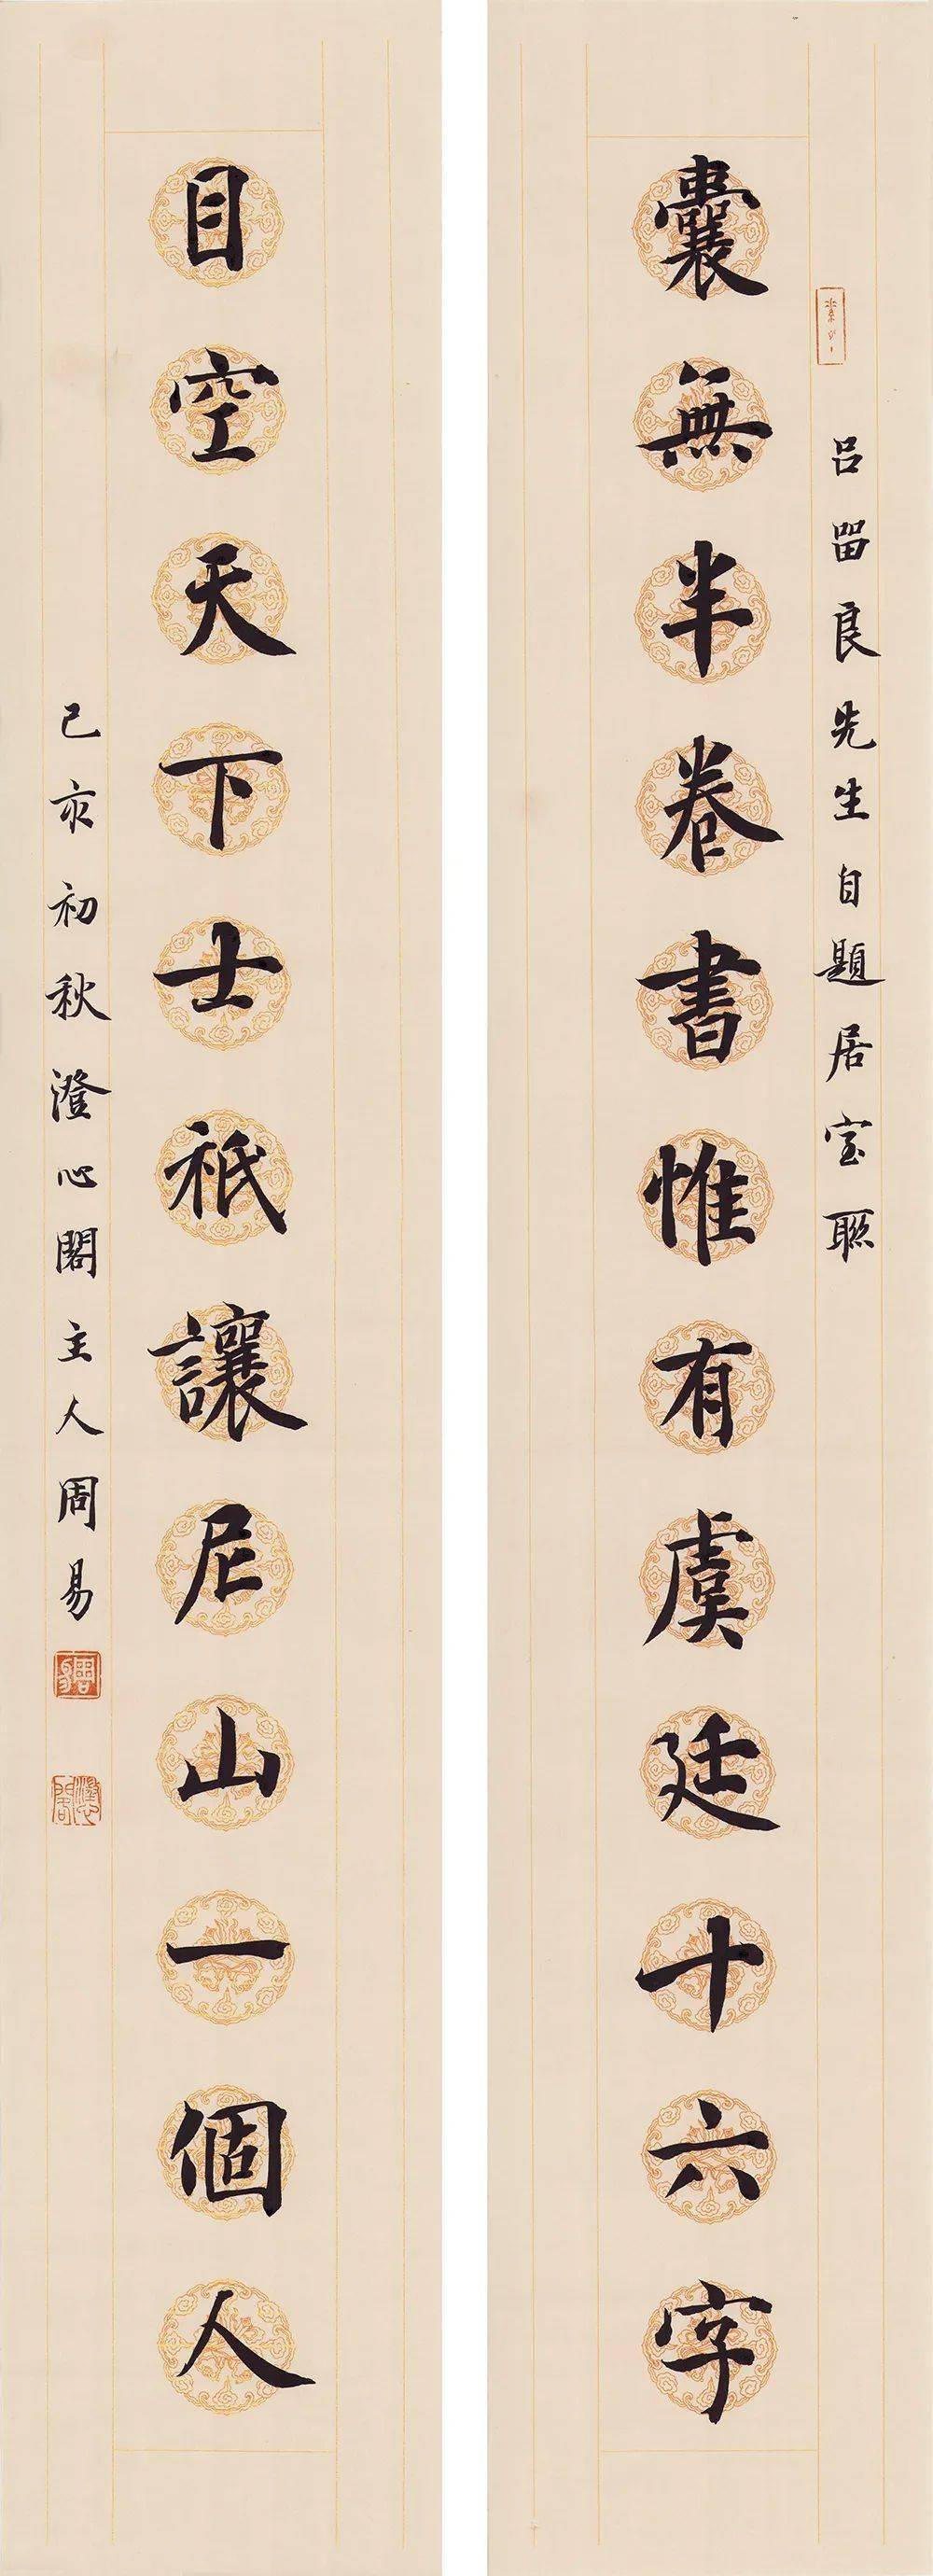 吕留良先生自題居室聯
囊無半卷書惟有虞廷十六字
目空天下士祇讓尼山一個人
己亥初秋澄心閣主人周易